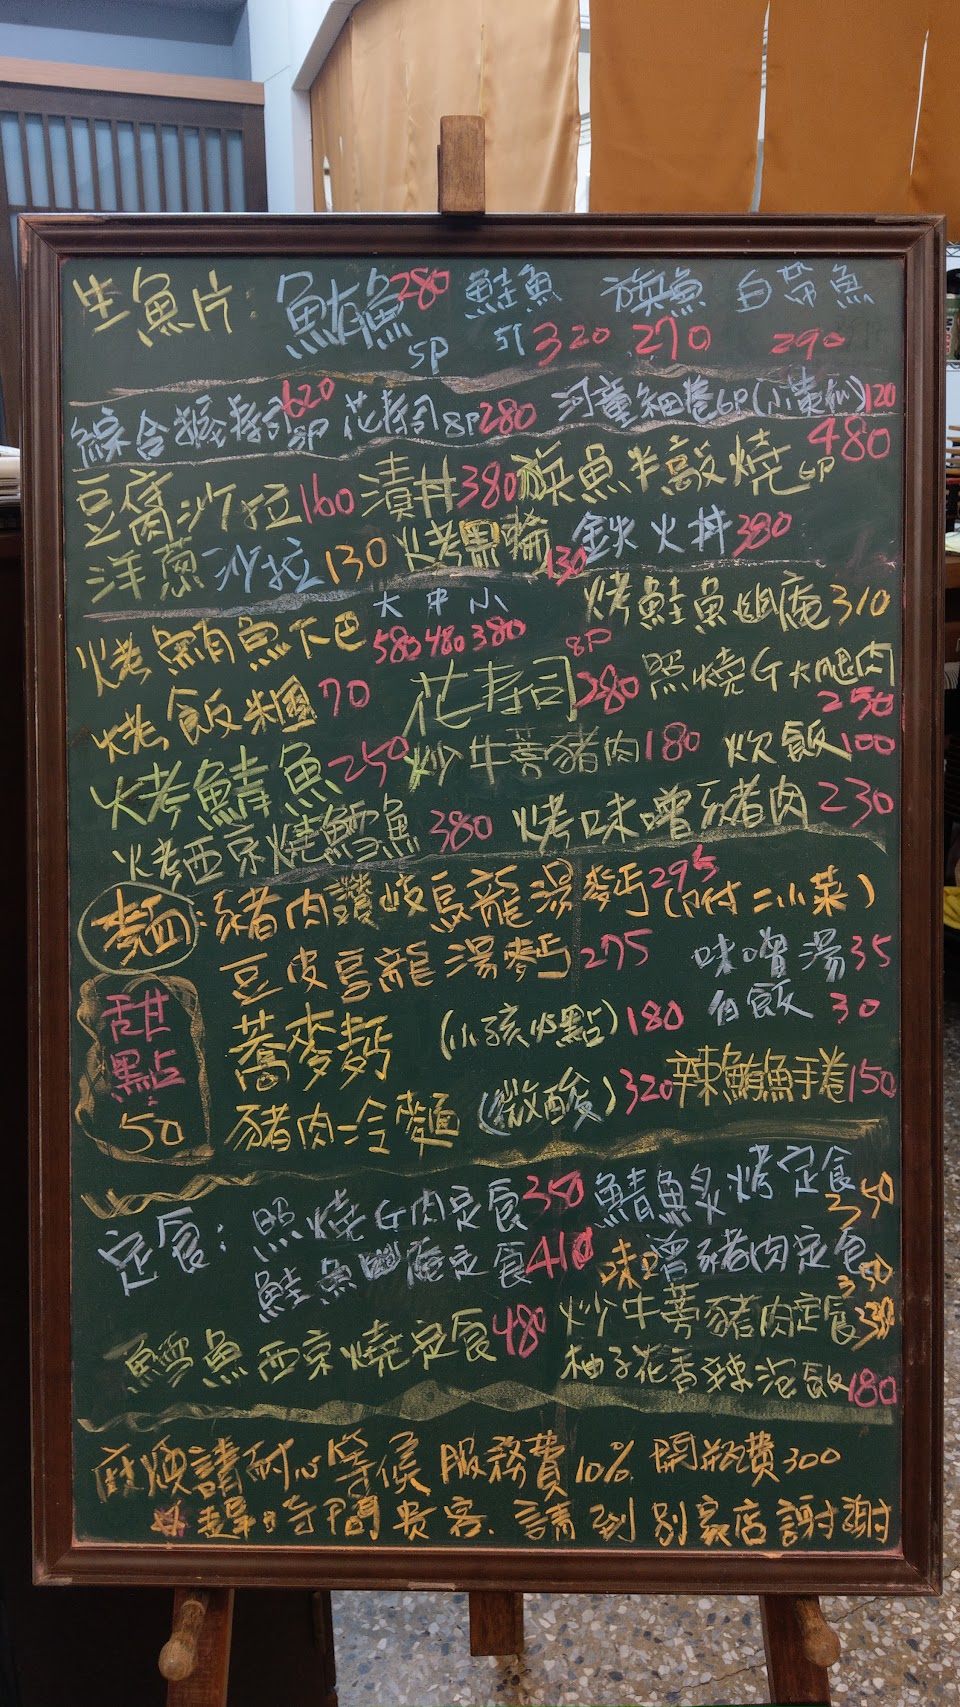 生魚片: 鮪魚 280 5P 鮭魚 5P 320 旗魚 270 白帶魚 290
綜合握壽司 8P 620 花壽司 8P 280 河童細卷 6P (小黃瓜) 120
豆腐沙拉 160 漬丼 380 旗魚半敲燒 6P 480
洋蔥沙拉 130 火烤黑輪 130 鉄火丼 380
火烤鮪魚下巴 大 中 小 580 480 380 烤鮭魚幽庵 310
烤飯糰 70 花壽司 8P 280 照燒G大腿肉 250
火烤鯖魚 250 炒牛蒡豬肉 180 炊飯 100
火烤西京燒鱈魚 380 烤味噌豬肉 230
麵: 豬肉讚岐烏龍湯麥丐 295 (附二小菜)
豆皮烏龍湯麥丐 275 味噌湯 35
甜點: 50
蕎麥麪 (小孩必點) 180 白飯 30
豬肉冷麵 (微酸) 320 辣鮪魚手卷 150
定食: 照燒G肉定食 350 鯖魚炙烤定食 350
鮭魚幽庵定食 410 味噌豬肉定食 350
鱈魚西京燒定食 480 炒牛蒡豬肉定食 330
柚子花香辣泡飯 180
麻煩請耐心等候 服務費10% 開瓶費300
趕時間貴客.請到別家店謝謝